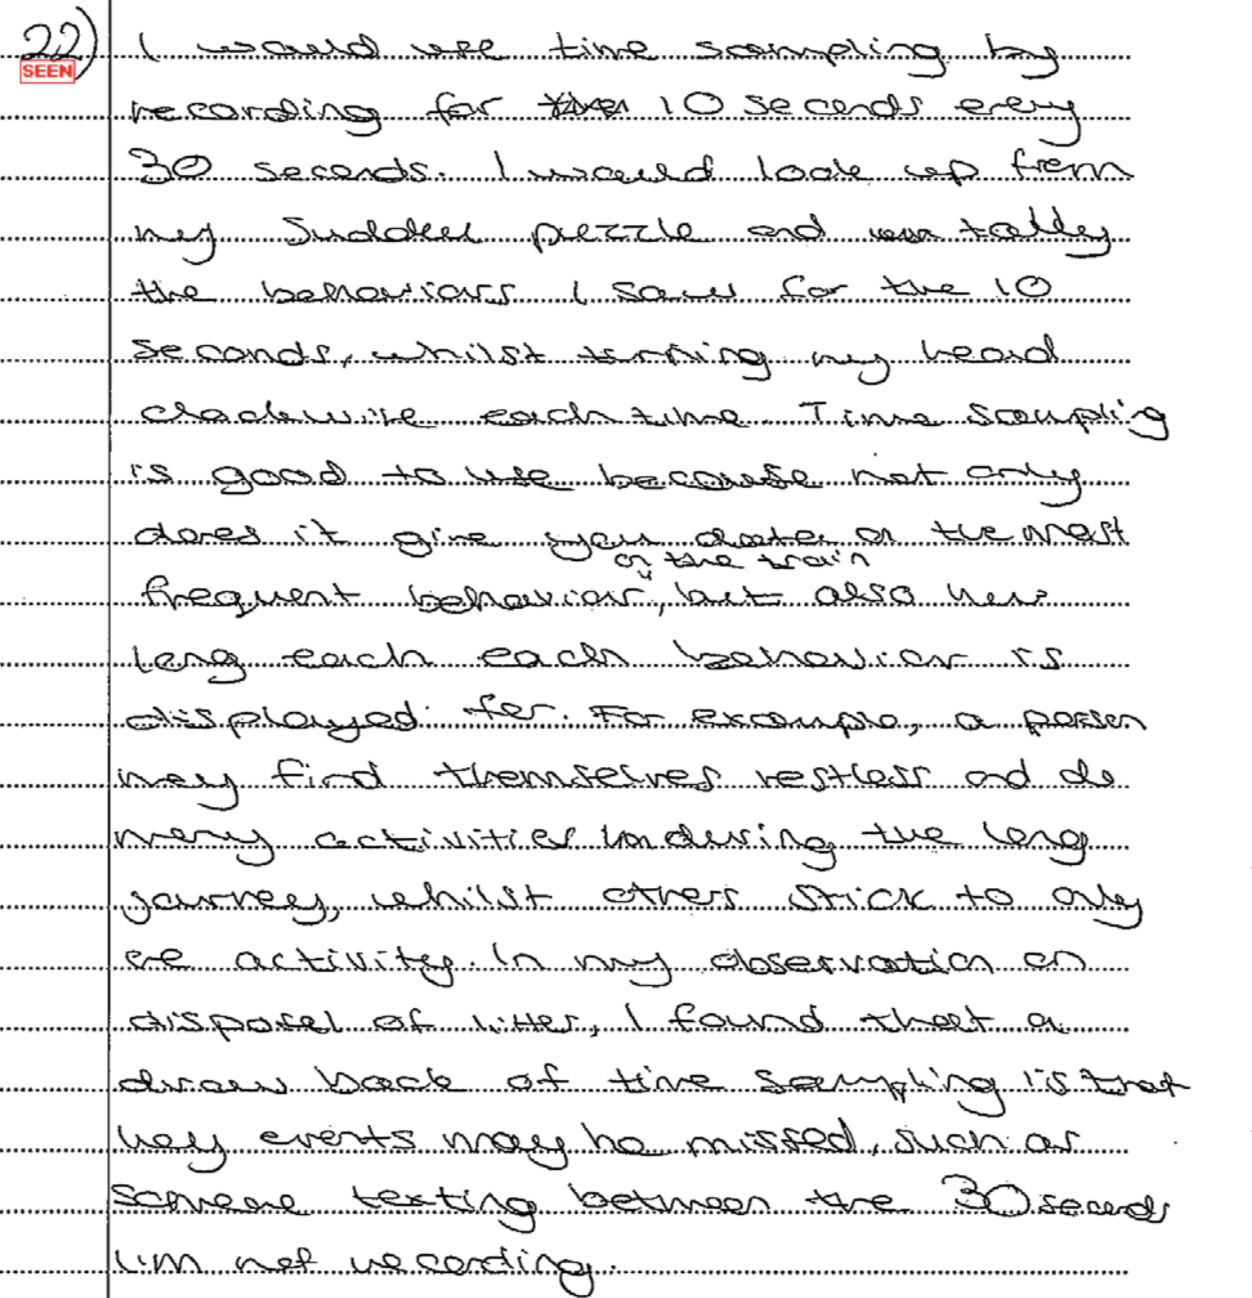 22) I would use time sampling by
SEEN
recording for 10 seconds every
30 seconds. I would look up from
my Sudoku puzzle and tally
the behaviours I saw for the 10
seconds, whilst turning my head
clockwise each time. Time sampling
is good to use because not only
does it give you data on the most
on the train
frequent behaviour, but also how
long each each behaviour is
displayed for. For example, a person
may find themselves restless and do
many activities during the long
journey, whilst others stick to only
one activity. In my observation on
disposal of litter, I found that a
draw back of time sampling is that
key events may be missed, such as
someone texting between the 30 seconds
I'm not recording.